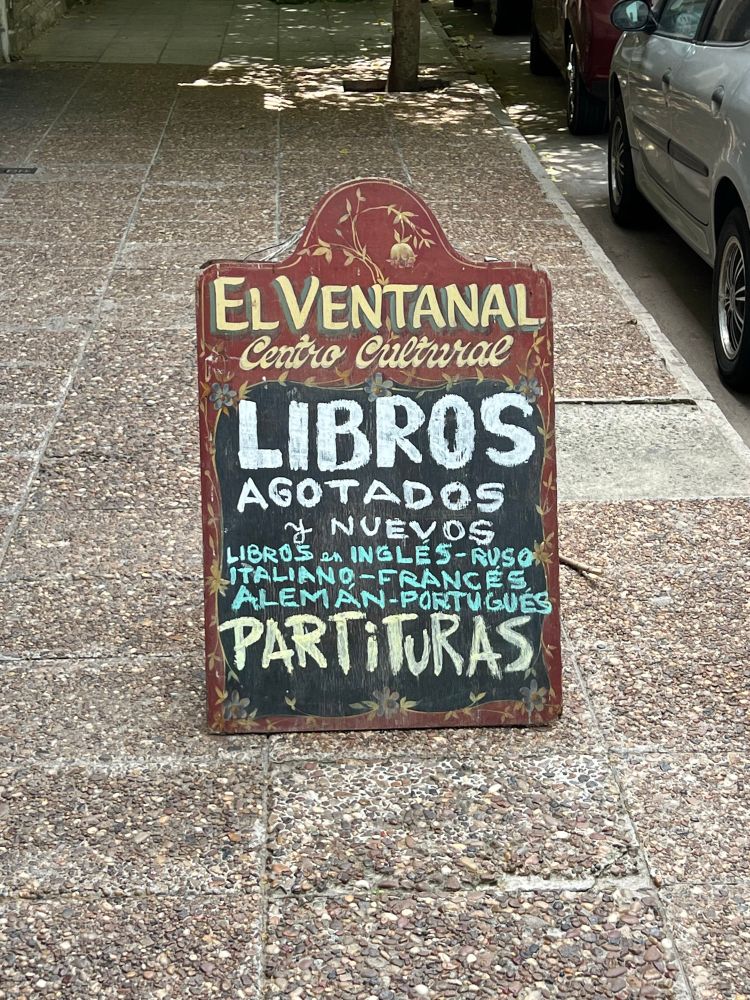 EL VENTANAL
Centro Cultural
LIBROS
AGOTADOS
y NUEVOS
LIBROS en INGLÉS-RUSO
ITALIANO-FRANCÉS
ALEMÁN-PORTUGUÉS
PARTiTURAS